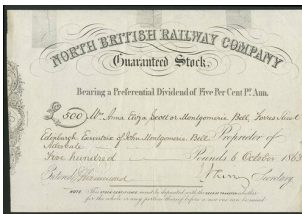 NORTH BRITISH RAILWAY COMPANY
Guaranteed Stock,
Bearing a Preferential Dividend of Five Per Cent Pr. Ann.
£500 Mrs. Anna Eliza Scott or Montgomerie Bell, Forres Street
Edinburgh, Executrix of John Montgomerie Bell Proprietor of
Five hundred Pounds 6 October 1863
Secretary
NOTE This must be deposited with the
for the whole or any portion thereof before a new one can be issued